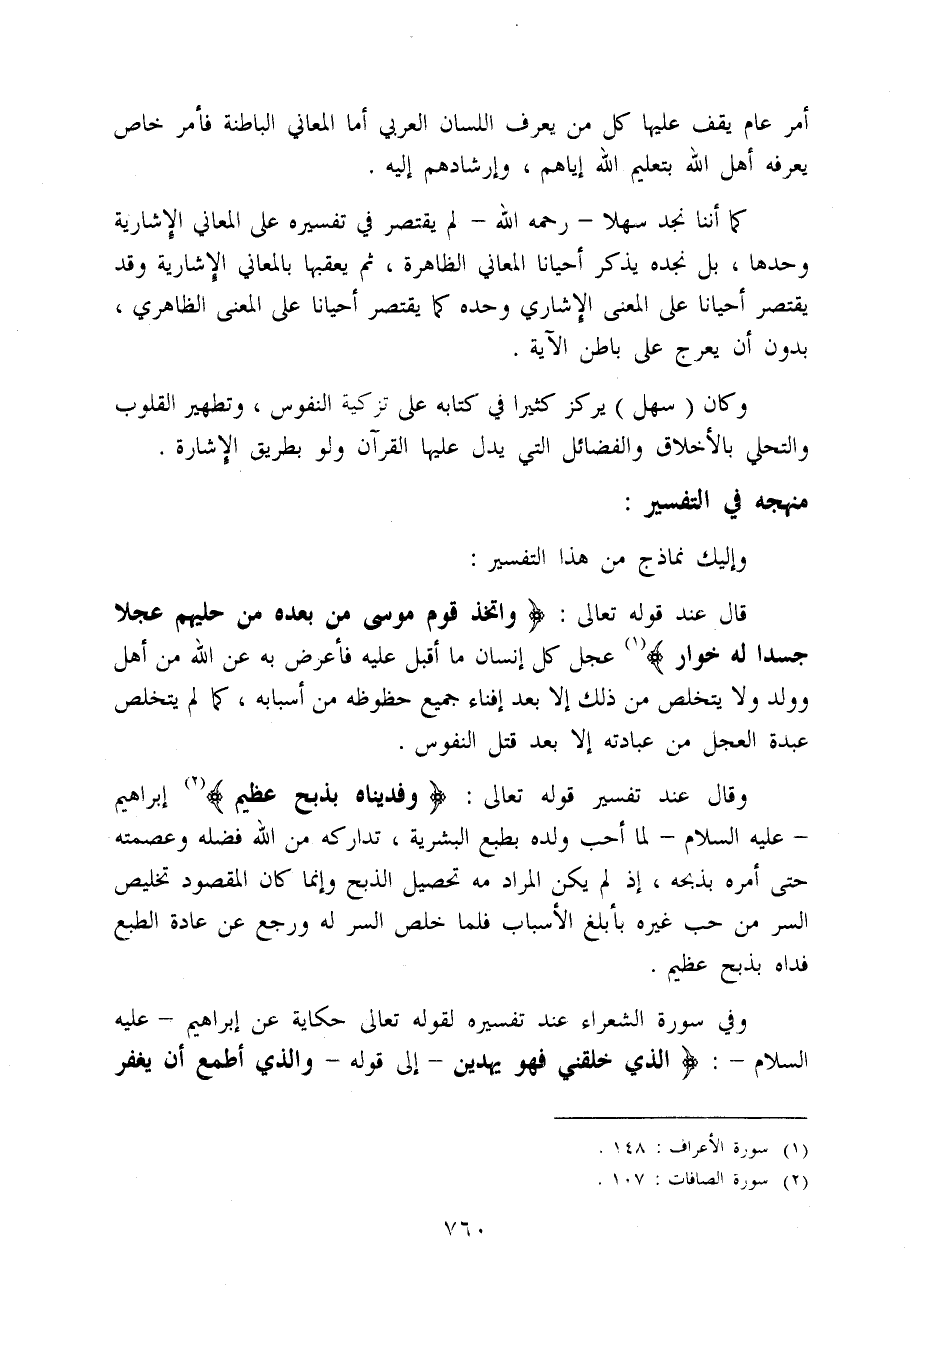 أمر عام يقف عليها كل من يعرف اللسان العربي أما المعاني الباطنة فأمر خاص
يعرفه أهل الله بتعليم الله إياهم ، وإرشادهم إليه .
كما أننا نجد سهلا – رحمه الله – لم يقتصر في تفسيره على المعاني الإشارية
وحدها ، بل نجده يذكر أحيانا المعاني الظاهرة ، ثم يعقبها بالمعاني الإشارية وقد
يقتصر أحيانا على المعنى الإشاري وحده كما يقتصر أحيانا على المعنى الظاهري ،
بدون أن يعرج على باطن الآية .
وكان ( سهل ) يركز كثيرا في كتابه على تزكية النفوس ، وتطهير القلوب
والتحلي بالأخلاق والفضائل التي يدل عليها القرآن ولو بطريق الإشارة .
منهجه في التفسير :
وإليك نماذج من هذا التفسير :
قال عند قوله تعالى : ﴿ واتخذ قوم موسى من بعده من حليهم عجلا
جسدا له خوار ﴾(١) عجل كل إنسان ما أقبل عليه فأعرض به عن الله من أهل
وولد ولا يتخلص من ذلك إلا بعد إفناء جميع حظوظه من أسبابه ، كما لم يتخلص
عبدة العجل من عبادته إلا بعد قتل النفوس .
وقال عند تفسير قوله تعالى : ﴿ وفديناه بذبح عظيم ﴾(٢) إبراهيم
– عليه السلام – لما أحب ولده بطبع البشرية ، تداركه من الله فضله وعصمته
حتى أمره بذبحه ، إذ لم يكن المراد مه تحصيل الذبح وإنما كان المقصود تخليص
السر من حب غيره بأبلغ الأسباب فلما خلص السر له ورجع عن عادة الطبع
فداه بذبح عظيم .
وفي سورة الشعراء عند تفسيره لقوله تعالى حكاية عن إبراهيم – عليه
السلام – : ﴿ الذي خلقني فهو يهدين – إلى قوله – والذي أطمع أن يغفر
(١) سورة الأعراف : ١٤٨ .
(٢) سورة الصافات : ١٠٧ .
٧٦٠